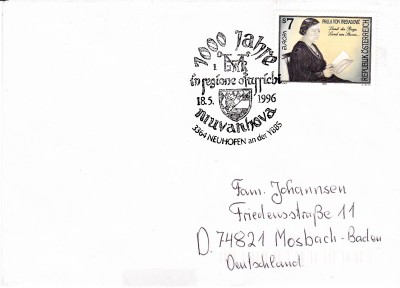 1000 Jahre
in regione ostarrichi
18.5. 1996
niuvanhova
3364 NEUHOFEN an der YBBS
S 7
PAULA VON PRERADOVIĆ
Land der Berge,
Land am Strome...
EUROPA
REPUBLIK ÖSTERREICH
Fam. Johannsen
Friedensstraße 11
D. 74821 Mosbach-Baden
Deutschland